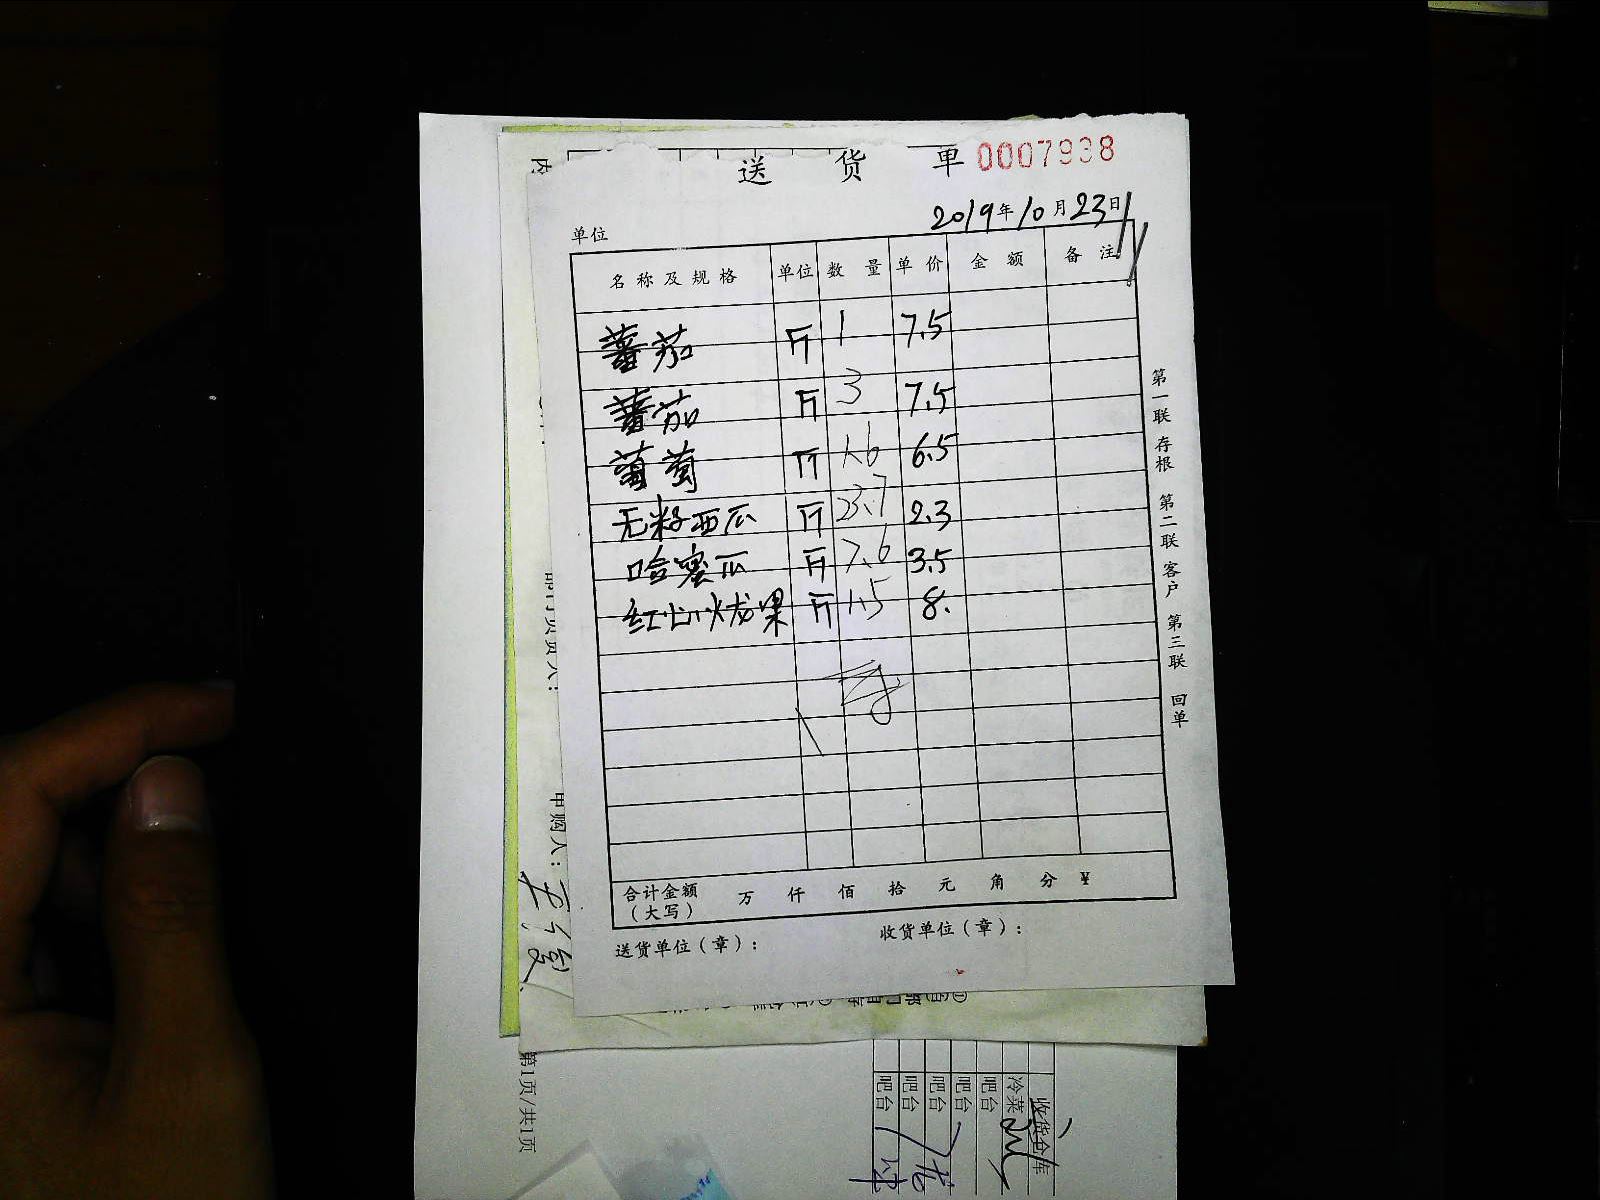 送 货 单 0007938
2019年10月23日
单位
名称及规格 单位 数量 单价 金额 备注
蕃茄 斤 1 7.5
蕃茄 斤 3 7.5
葡萄 斤 1.6 6.5
无籽西瓜 斤 23.7 2.3
哈蜜瓜 斤 7.6 3.5
红心火龙果 斤 1.5 8.
合计金额(大写) 万 仟 佰 拾 元 角 分 ¥
送货单位(章): 收货单位(章):
第一联 存根 第二联 客户 第三联 回单
申购人:
第1页/共1页
收货仓库
冷菜
吧台
吧台
吧台
吧台
吧台